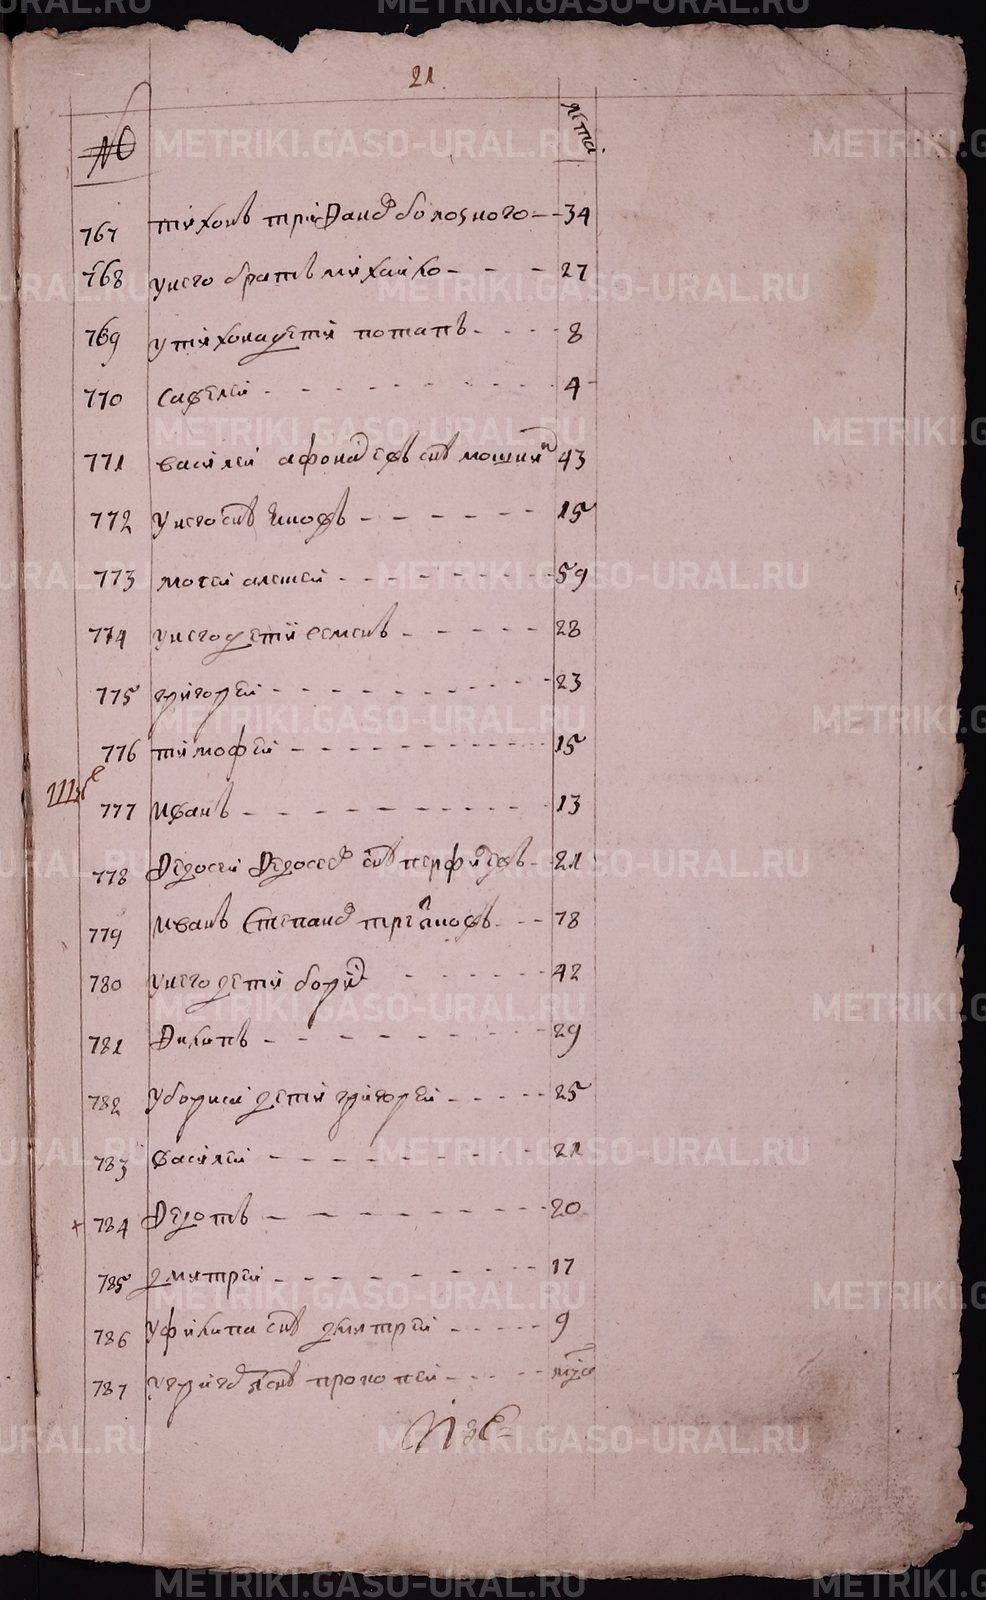 21
№ лета
767 тихонъ трифанов болозного 34
768 унего братъ михаило 27
769 утихона дети потапъ 8
770 савелеи 4
771 василеи афонасевъ снъ мошкин 43
772 унего снъ иновъ 15
773 мосеи алешеи 59
774 унего дети семенъ 28
775 григореи 23
776 тимофеи 15
777 Иванъ 13
778 Федосеи Федосеев снъ перфилевъ 21
779 Иванъ Степанов 78
780 унего дети борис 42
781 Филипъ 29
782 Убориса дети григореи 25
783 василеи 21
784 Федотъ 20
785 дмитреи 17
786 Уфилипа снъ дмитреи 9
787 Угригоря снъ прокопеи
METRIKI.GASO-URAL.RU